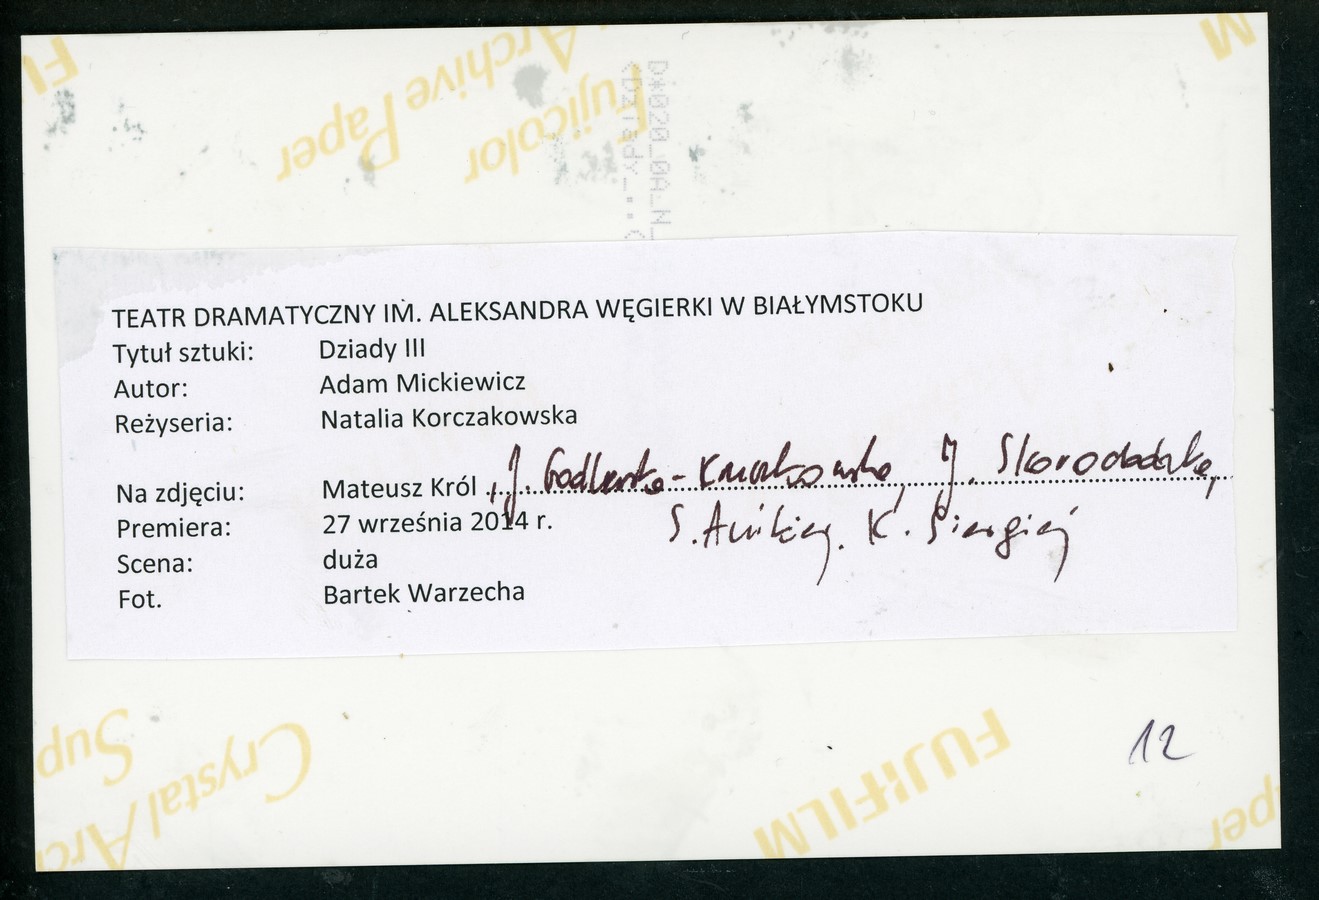 Fujicolor
Archive Paper
<Dziady_
D*020_0A_N_
TEATR DRAMATYCZNY IM. ALEKSANDRA WĘGIERKI W BIAŁYMSTOKU
Tytuł sztuki: Dziady III
Autor: Adam Mickiewicz
Reżyseria: Natalia Korczakowska
Na zdjęciu: Mateusz Król, J. Godlewska-Kruczkowska, J. Skorododzka,
S. K. Siergiej
Premiera: 27 września 2014 r.
Scena: duża
Fot. Bartek Warzecha
12
Crystal Arc
Sup
FUJIFILM